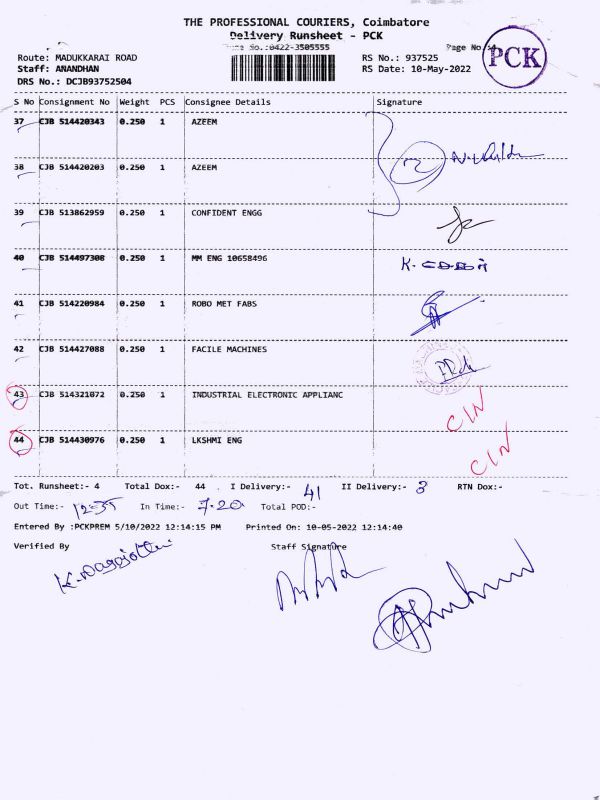 THE PROFESSIONAL COURIERS, Coimbatore
Delivery Runsheet - PCK
No.:0422-3505555
Page No.:
PCK
Route: MADUKKARAI ROAD
RS No.: 937525
Staff: ANANDHAN
RS Date: 10-May-2022
DRS No.: DCJB93752504
S No Consignment No Weight PCS Consignee Details Signature
37 CJB 514420343 0.250 1 AZEEM
38 CJB 514420203 0.250 1 AZEEM
39 CJB 513862959 0.250 1 CONFIDENT ENGG
40 CJB 514497308 0.250 1 MM ENG 10658496
41 CJB 514220984 0.250 1 ROBO MET FABS
42 CJB 514427088 0.250 1 FACILE MACHINES
43 CJB 514321072 0.250 1 INDUSTRIAL ELECTRONIC APPLIANC CIN
44 CJB 514430976 0.250 1 LKSHMI ENG CIN
Tot. Runsheet:- 4 Total Dox:- 44 I Delivery:- 41 II Delivery:- 3 RTN Dox:-
Out Time:- 12-35 In Time:- 7.20 Total POD:-
Entered By :PCKPREM 5/10/2022 12:14:15 PM Printed On: 10-05-2022 12:14:40
Verified By Staff Signature